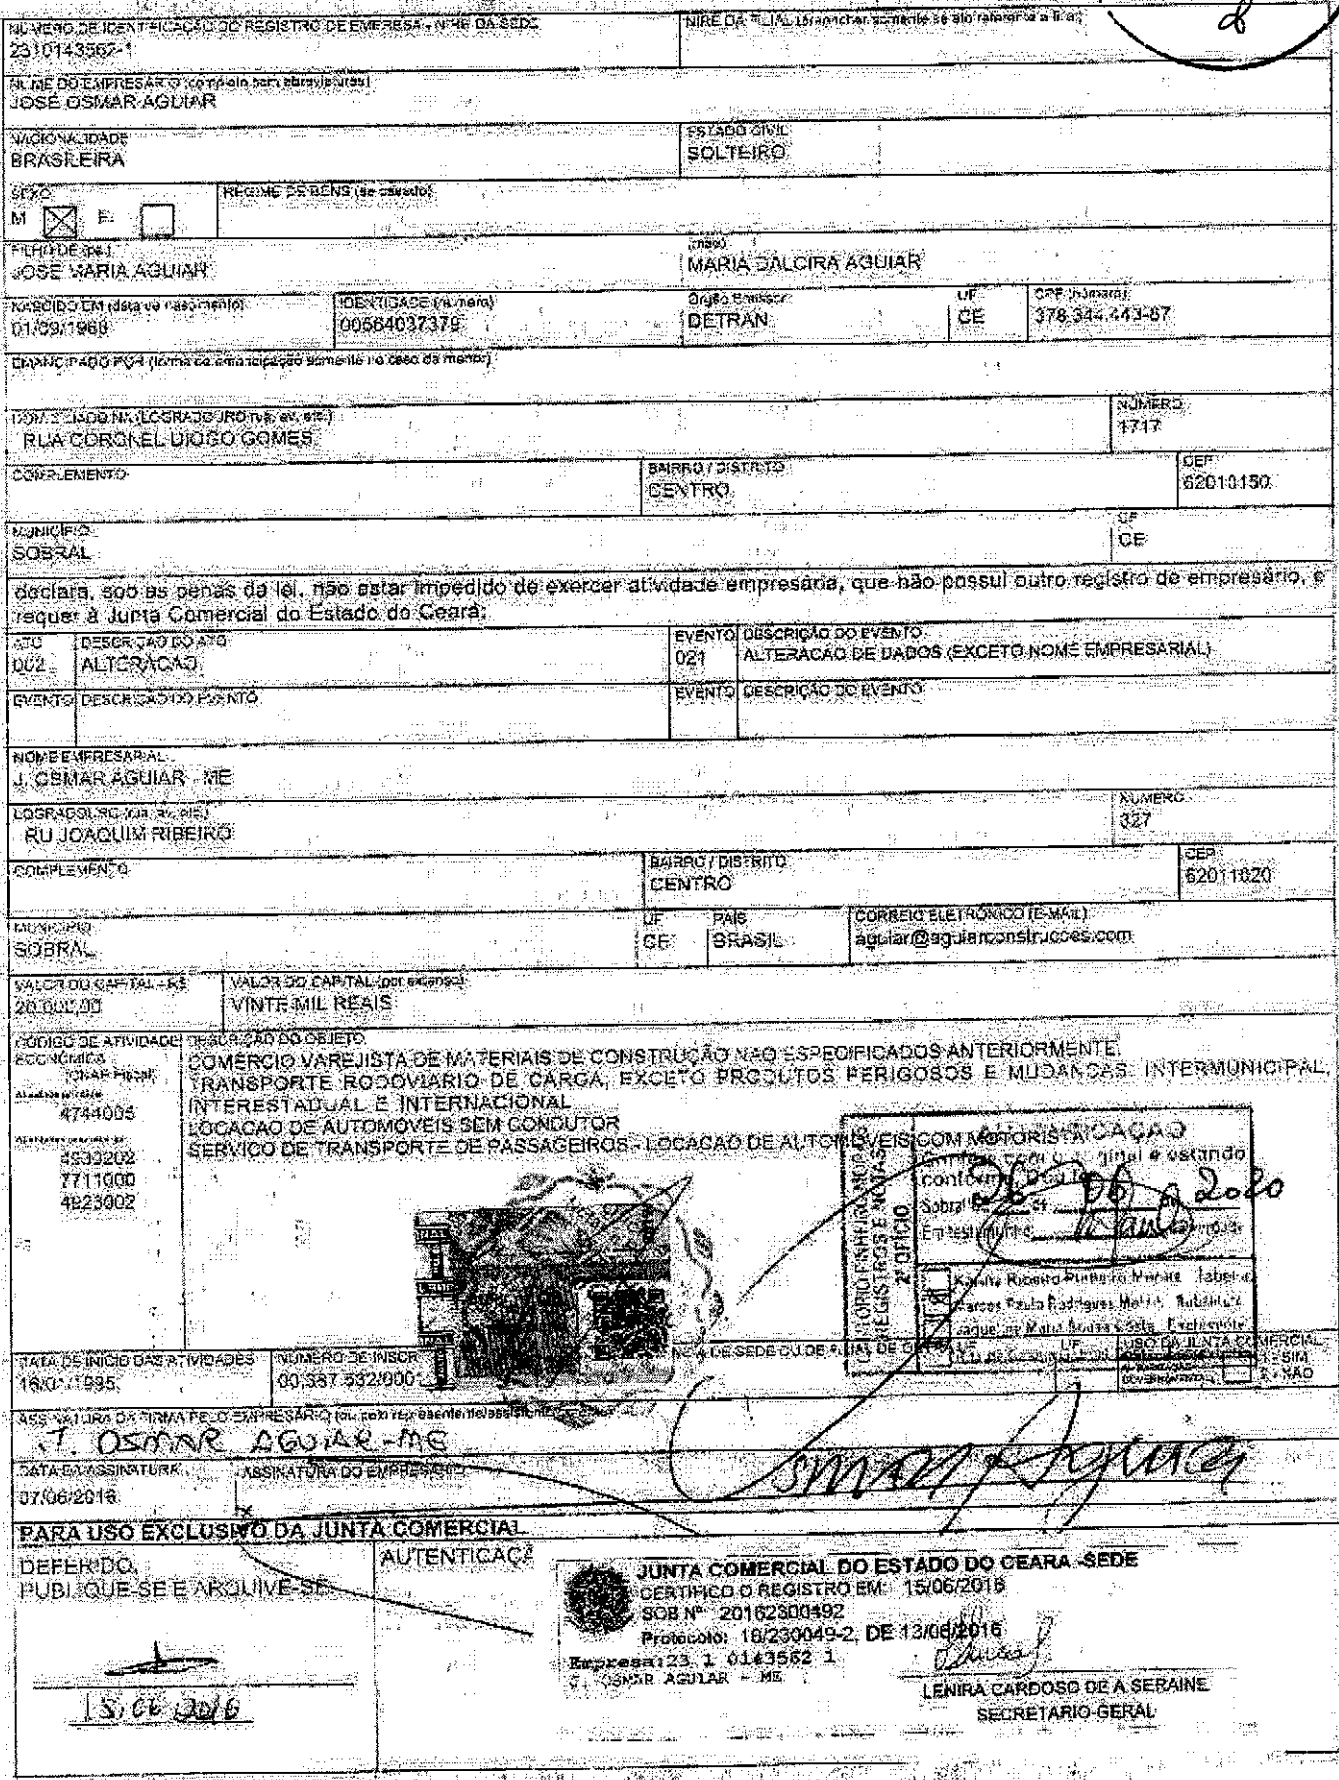 NÚMERO DE IDENTIFICAÇÃO DO REGISTRO DE EMPRESA - NIRE DA SEDE
NIRE DA FILIAL (preencher somente se ato referente a filial)
2310143562-1
NOME DO EMPRESÁRIO (completo sem abreviaturas)
JOSE OSMAR AGUIAR
NACIONALIDADE
BRASILEIRA
ESTADO CIVIL
SOLTEIRO
SEXO
M F
REGIME DE BENS (se casado)
FILHO DE (pai)
JOSE MARIA AGUIAR
(mãe)
MARIA DALCIRA AGUIAR
NASCIDO EM (data de nascimento)
IDENTIDADE (número)
00564037379
Órgão Emissor
DETRAN
UF
CE
CPF (número)
378.344.443-87
EMANCIPADO POR (forma de emancipação somente no caso de menor)
DOMICILIADO NA (LOGRADOURO rua, av, etc.)
RUA CORONEL DIOGO GOMES
NÚMERO
1717
COMPLEMENTO
BAIRRO / DISTRITO
CENTRO
CEP
62010150
MUNICÍPIO
SOBRAL
UF
CE
declara, sob as penas da lei, não estar impedido de exercer atividade empresária, que não possui outro registro de empresário, e
requer à Junta Comercial do Estado do Ceará:
ATO
002
DESCRIÇÃO DO ATO
ALTERAÇÃO
EVENTO
021
DESCRIÇÃO DO EVENTO
ALTERAÇÃO DE DADOS (EXCETO NOME EMPRESARIAL)
EVENTO DESCRIÇÃO DO EVENTO
EVENTO DESCRIÇÃO DO EVENTO
NOME EMPRESARIAL
J. OSMAR AGUIAR - ME
LOGRADOURO (rua, av, etc.)
RU JOAQUIM RIBEIRO
NÚMERO
327
COMPLEMENTO
BAIRRO / DISTRITO
CENTRO
CEP
62011020
MUNICÍPIO
SOBRAL
UF
CE
PAÍS
BRASIL
CORREIO ELETRÔNICO (E-MAIL)
aguiar@aguiarconstrucoes.com
VALOR DO CAPITAL - R$
20.000,00
VALOR DO CAPITAL (por extenso)
VINTE MIL REAIS
CÓDIGO DE ATIVIDADE ECONÔMICA
(CNAE Fiscal)
Atividade principal
4744005
4930202
7711000
4923002
DESCRIÇÃO DO OBJETO
COMERCIO VAREJISTA DE MATERIAIS DE CONSTRUÇÃO NAO ESPECIFICADOS ANTERIORMENTE.
TRANSPORTE RODOVIARIO DE CARGA, EXCETO PRODUTOS PERIGOSOS E MUDANCAS, INTERMUNICIPAL,
INTERESTADUAL E INTERNACIONAL
LOCACAO DE AUTOMOVEIS SEM CONDUTOR
SERVICO DE TRANSPORTE DE PASSAGEIROS - LOCACAO DE AUTOMOVEIS COM MOTORISTA
CARTÓRIO PINHEIRO MORAIS
REGISTROS E NOTAS
2º OFÍCIO
AUTENTICAÇÃO
Sobral 26 06 2020
DATA DE INÍCIO DAS ATIVIDADES
NÚMERO DE INSCR
USO DA JUNTA COMERCIAL
SIM
NÃO
ASSINATURA DA FIRMA PELO EMPRESÁRIO
J. OSMAR AGUIAR-ME
DATA DA ASSINATURA
07/06/2016
ASSINATURA DO EMPRESÁRIO
Osmar Aguiar
PARA USO EXCLUSIVO DA JUNTA COMERCIAL
DEFERIDO.
PUBLIQUE-SE E ARQUIVE-SE
15/06/2016
AUTENTICAÇÃ
JUNTA COMERCIAL DO ESTADO DO CEARA - SEDE
CERTIFICO O REGISTRO EM: 15/06/2016
SOB Nº 20162300492
Protocolo: 16/230049-2, DE 13/06/2016
Empresa: 23 1 0143562 1
J. OSMAR AGUIAR - ME
LENIRA CARDOSO DE A SERAINE
SECRETARIO-GERAL